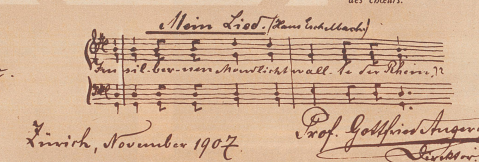 des Chœurs.
Mein Lied. (Hans Eschelbach)
Im sil-ber-nen Mondlicht wall-te der Rhein,
Zürich, November 1907
Prof. Gottfried Angerer
Direktor